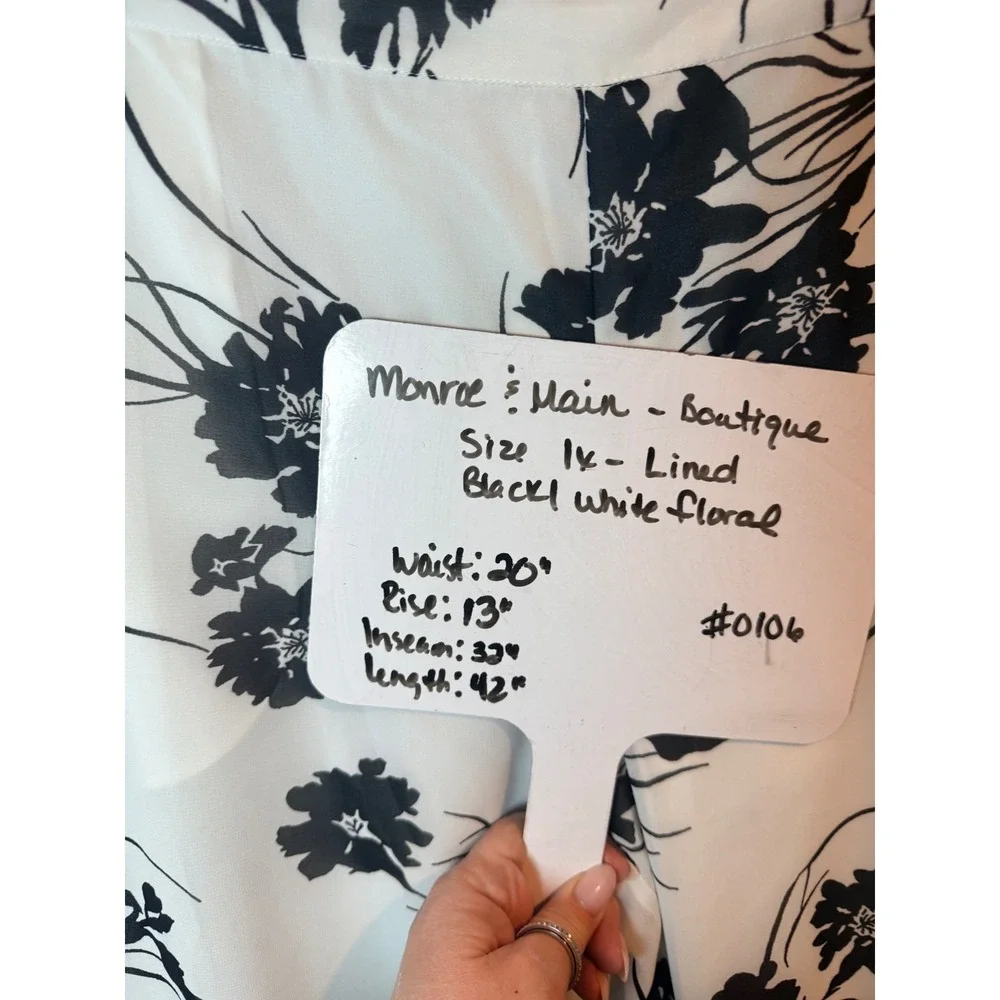 Monroe & Main - Boutique
Size 1x - Lined
Black/White floral
Waist: 20"
Rise: 13"
Inseam: 32"
Length: 42"
#0106